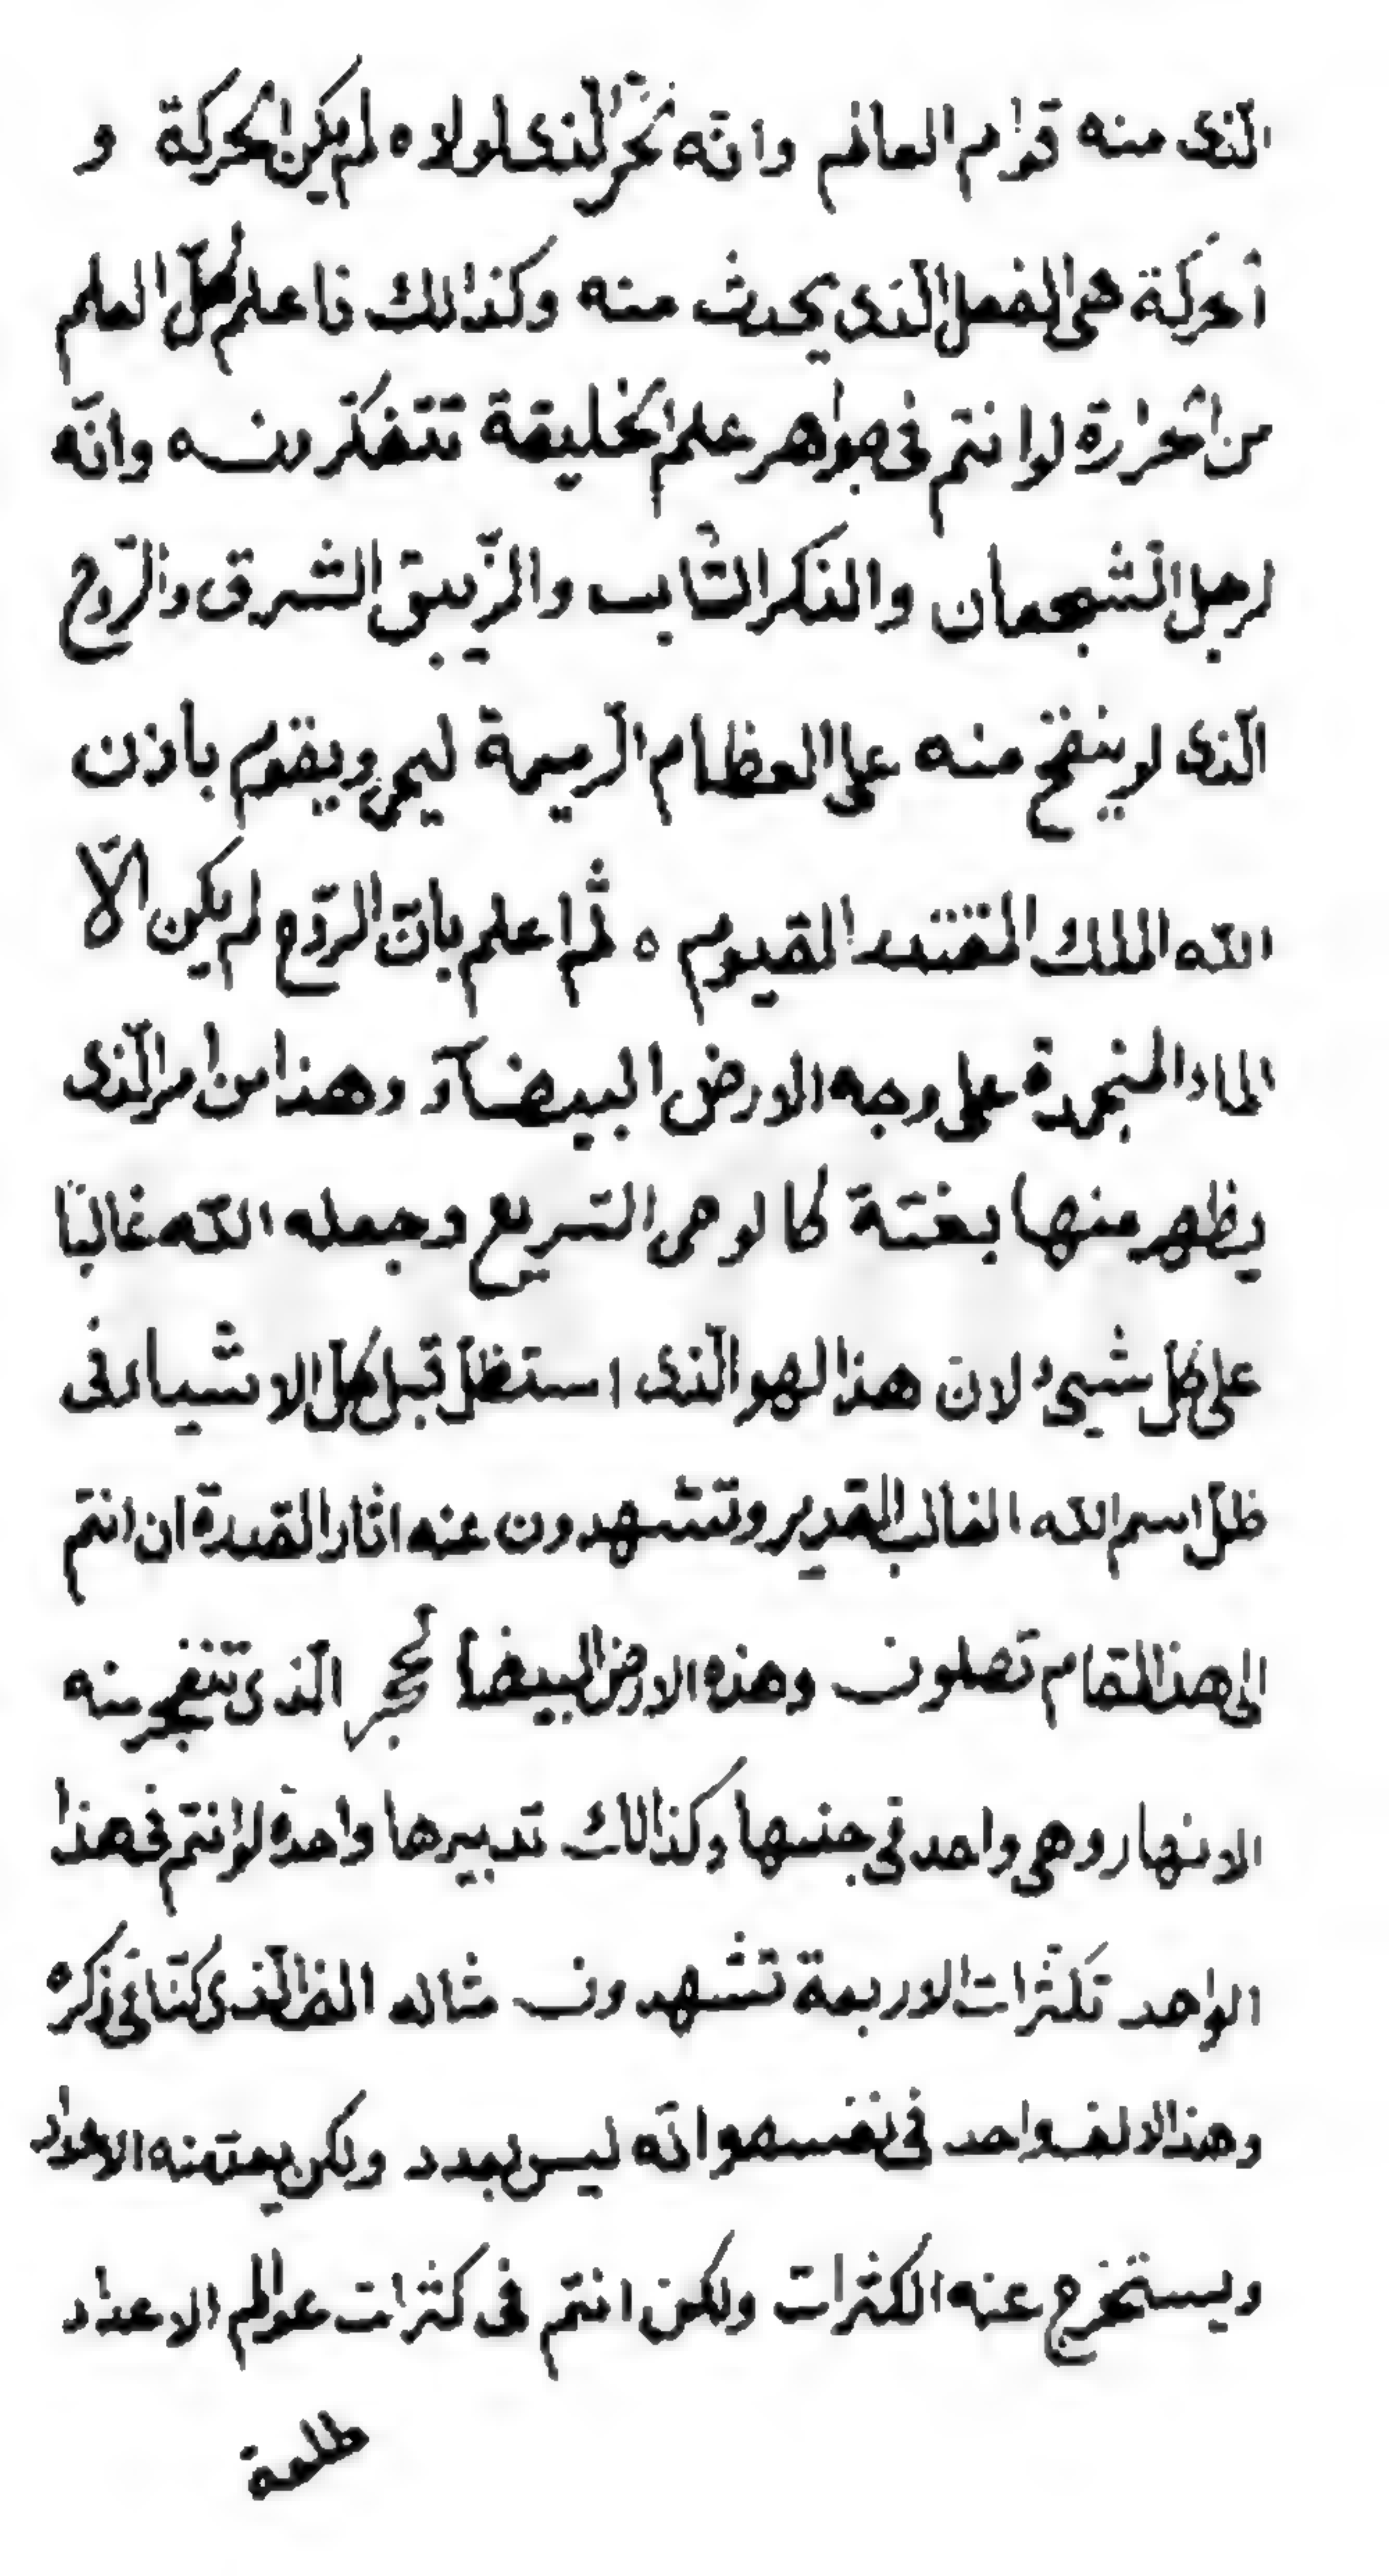 الّذی منه قوام العالم وانّه لحرّ الّذی لولاه لم یکن الحرکة و
الحرکة هی الفعل الّذی یحدث منه وکذالک فاعلم کلّ العلم
من الحرارة لو انتم فی جواهر علم الخلیقة تتفکّرون وانّه
لرجل الشّجعان والذّکر الشّاب والزّیبق الشّرق والرّوح
الّذی لو ینفخ منه علی العظام الرّمیمة لیحیی ویقوم باذن
اللّه الملک المقتدر القیوم ه ثمّ اعلم بانّ الرّوح لم یکن الّا
الماء المنجمدة علی وجه الارض البیضآء وهذا من امر الّذی
یظهر منها بغتة کالوحی السّریع وجعله اللّه غالبًا
علی کلّ شیئ لانّ هذا لهو الّذی استظلّ قبل کلّ الاشیاء فی
ظلّ اسم اللّه الغالب القدیر وتشهدون عنه اثار القدرة ان انتم
الی هذا المقام تصلون وهذه الارض البیضا لحجر الّذی تنفجر منه
الانهار وهی واحد فی جنسها وکذالک تدبیرها واحدة لو انتم فی هذا
الواحد تکثّرات الاربعة تشهدون مثاله الف الّذی کنّا فی ذکره
وهذا الالف واحد فی نفسه وانّه لیس بعدد ولکن یعدّ منه الاعداد
ویستخرج عنه الکثرات ولکن انتم فی کثرات عوالم الاعداد
طلعة